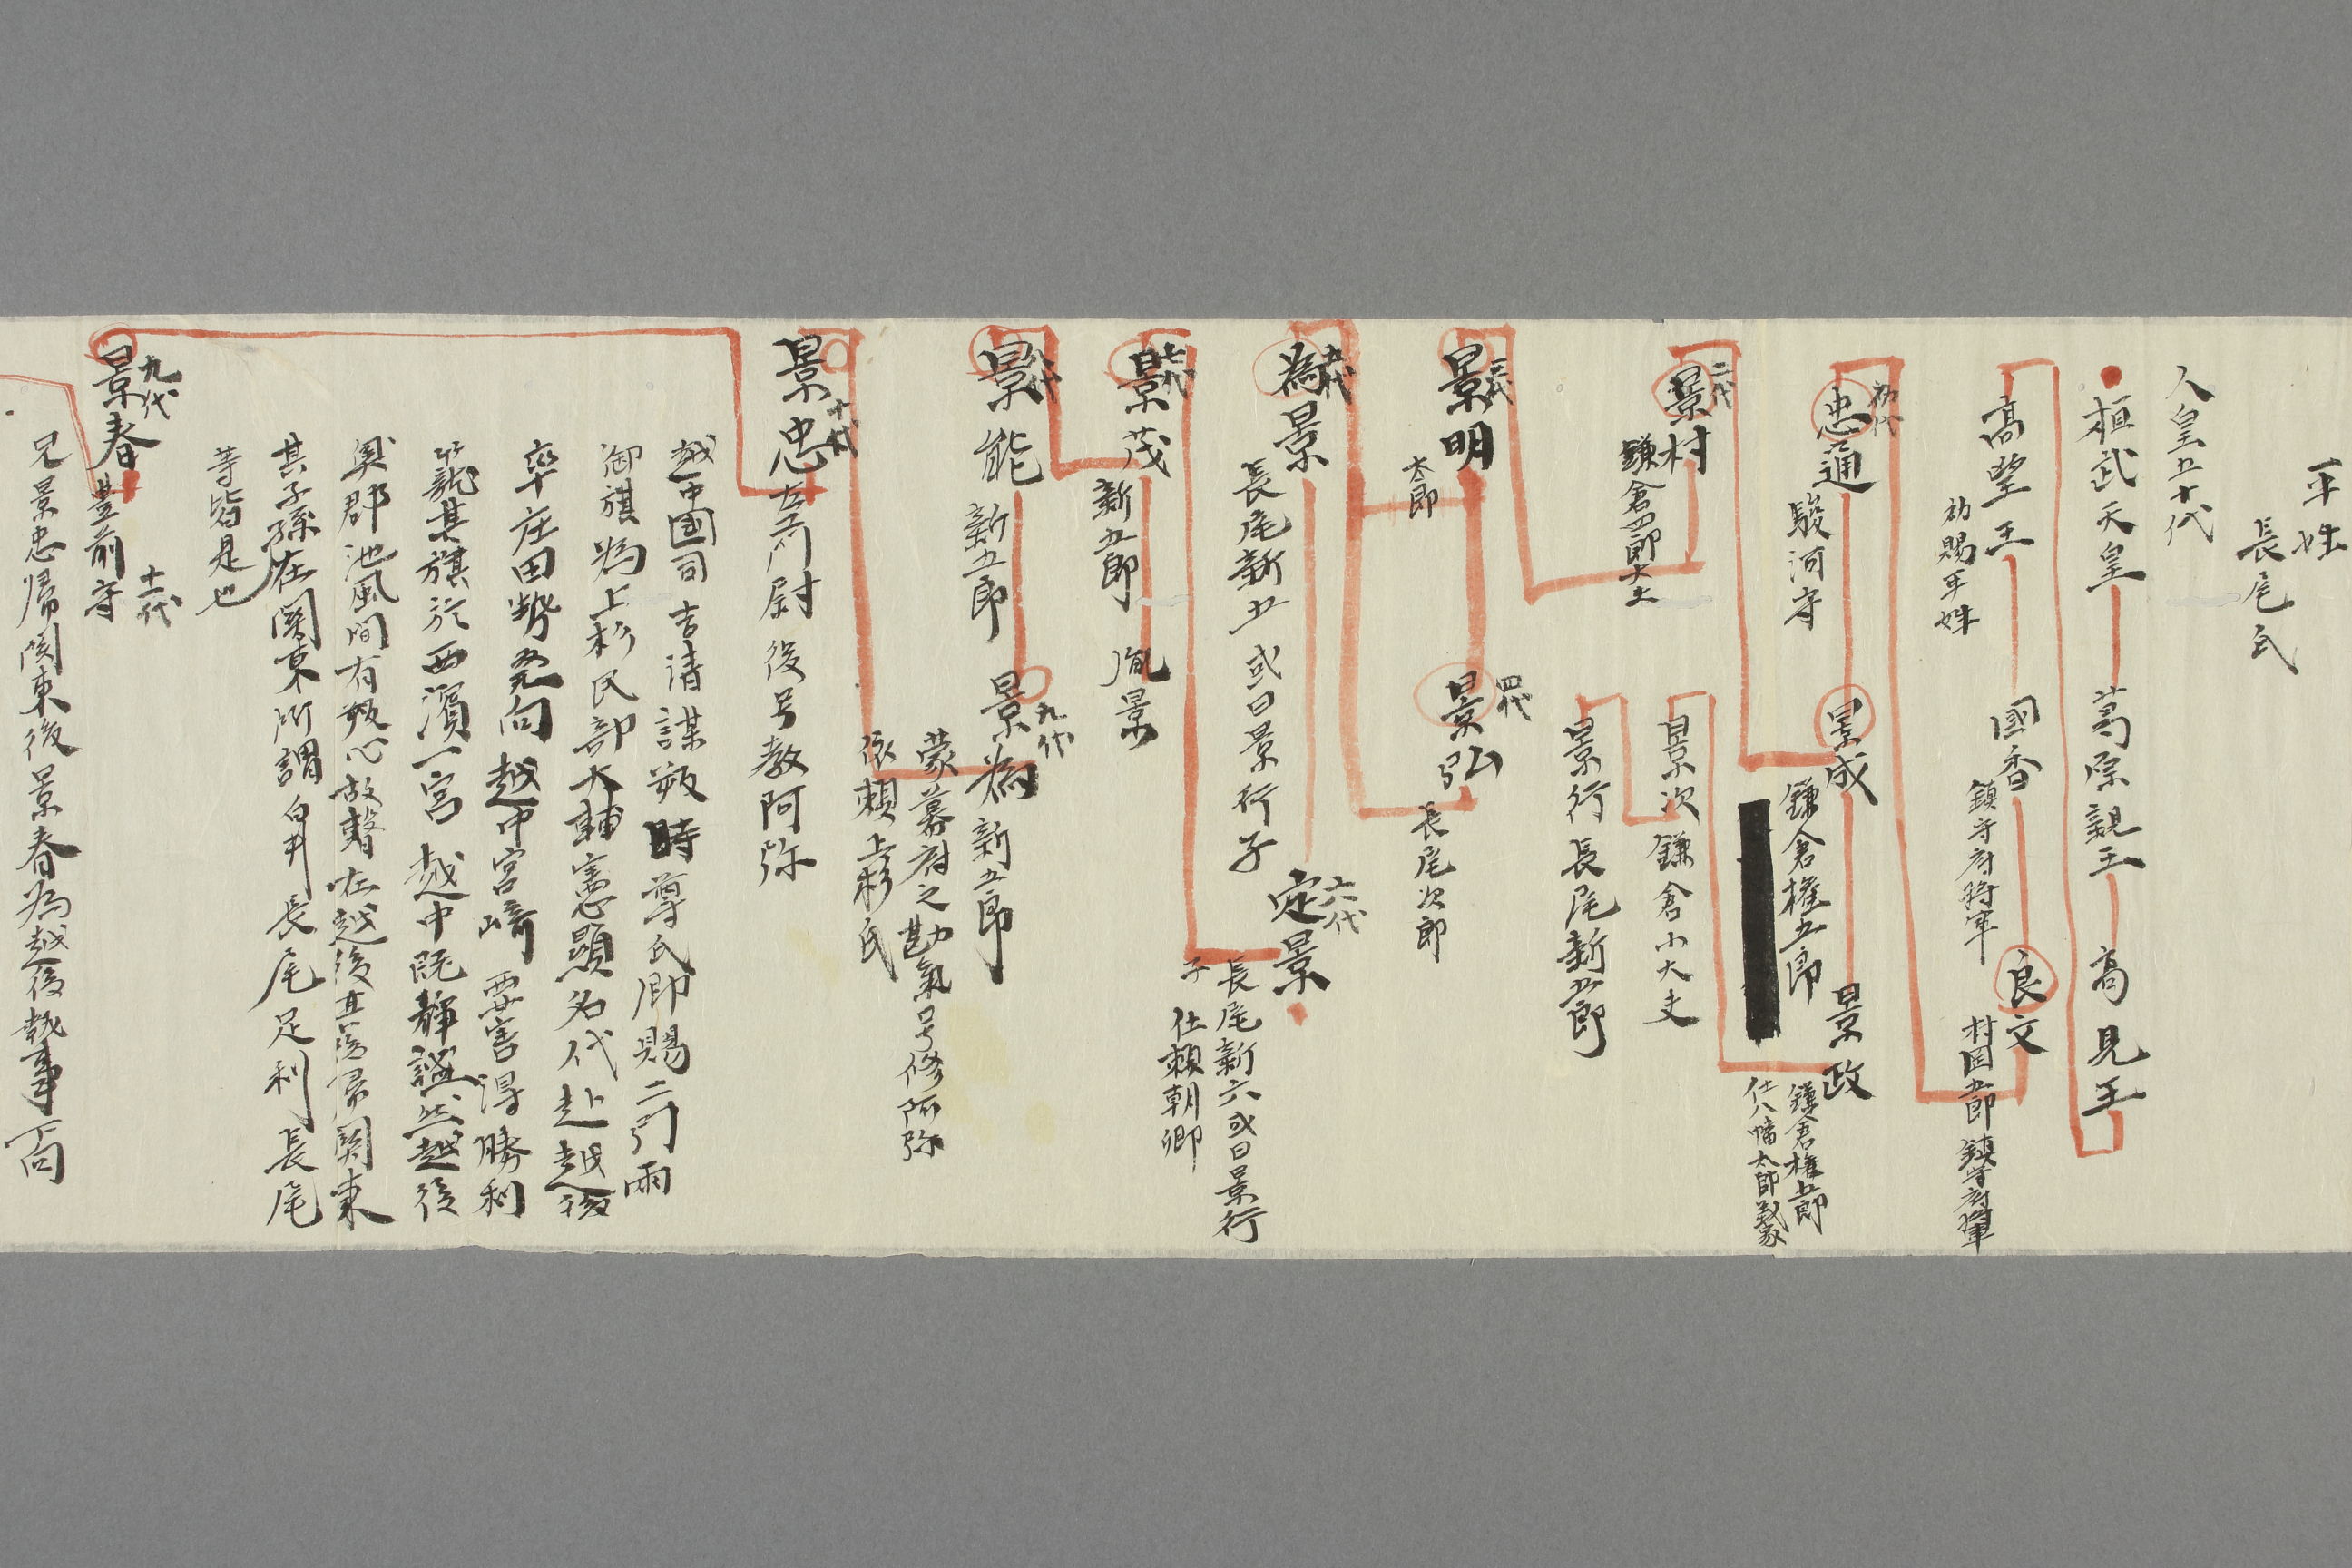 平姓
長尾氏
人皇五十代
桓武天皇
葛原親王
高見王
高望王
初賜平姓
國香
鎮守府将軍
良文
村岡五郎 鎮守府将軍
初代
忠通
駿河守
景成
鎌倉権五郎
景政
鎌倉権五郎
仕八幡太郎義家
二代
景村
鎌倉四郎大夫
景次
鎌倉小大夫
景行
長尾新五郎
三代
景明
太郎
四代
景弘
長尾次郎
五代
為景
長尾新五 或曰景行子
六代
定景
長尾新六或曰景行
子 仕頼朝卿
七代
景茂
新五郎
胤景
八代
景能
新五郎
九代
景為
新五郎
蒙幕府之勘氣号修阿弥
依頼上杉氏
十代
景忠
左衛門尉 後号教阿弥
越中國司 吉請謀叛時尊氏即賜二引両
御旗為上杉民部大輔憲顕名代赴越後
率庄田勢発向越中宮崎要害得勝利
籠其旗於西濱一宮越中既静謐然越後
奥郡池風間有叛心故暫在越後其後帰関東
其子孫在関東所謂白井長尾足利長尾
等皆是也
九代
景春
豊前守
十一代
兄景忠帰関東後景春為越後執事而